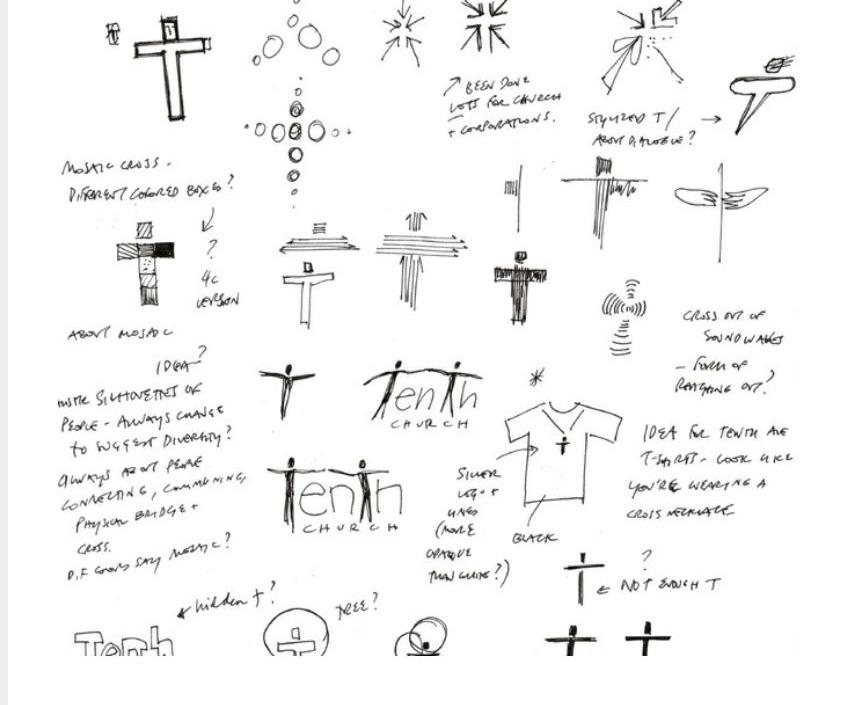 BEEN DONE
LOTS FOR CHURCH
+ CORPORATIONS.
STYLIZED T /
ABOUT DIALOGUE?
MOSAIC CROSS -
DIFFERENT COLORED BOXES?
?
4C
VERSION
ABOUT MOSAIC
CROSS OUT OF
SOUNDWAVES
- FORM OF
REACHING OUT?
IDEA?
SILHOUETTES OF
PEOPLE - ALWAYS CHANGE
TO SUGGEST DIVERSITY?
ALWAYS ABOUT PEOPLE
CONNECTING, COMMUNING,
PHYSICAL BRIDGE +
CROSS.
DIF COLORS SAY MOSAIC?
Tenth
CHURCH
Tenth
CHURCH
*
SILVER
LOGO +
LINES
(MORE
OPAQUE
THAN WHITE?)
BLACK
IDEA FOR TENTH AVE
T-SHIRTS - LOOK LIKE
YOU'RE WEARING A
CROSS NECKLACE
?
NOT ENOUGH T
hidden t?
TREE?
Tenth